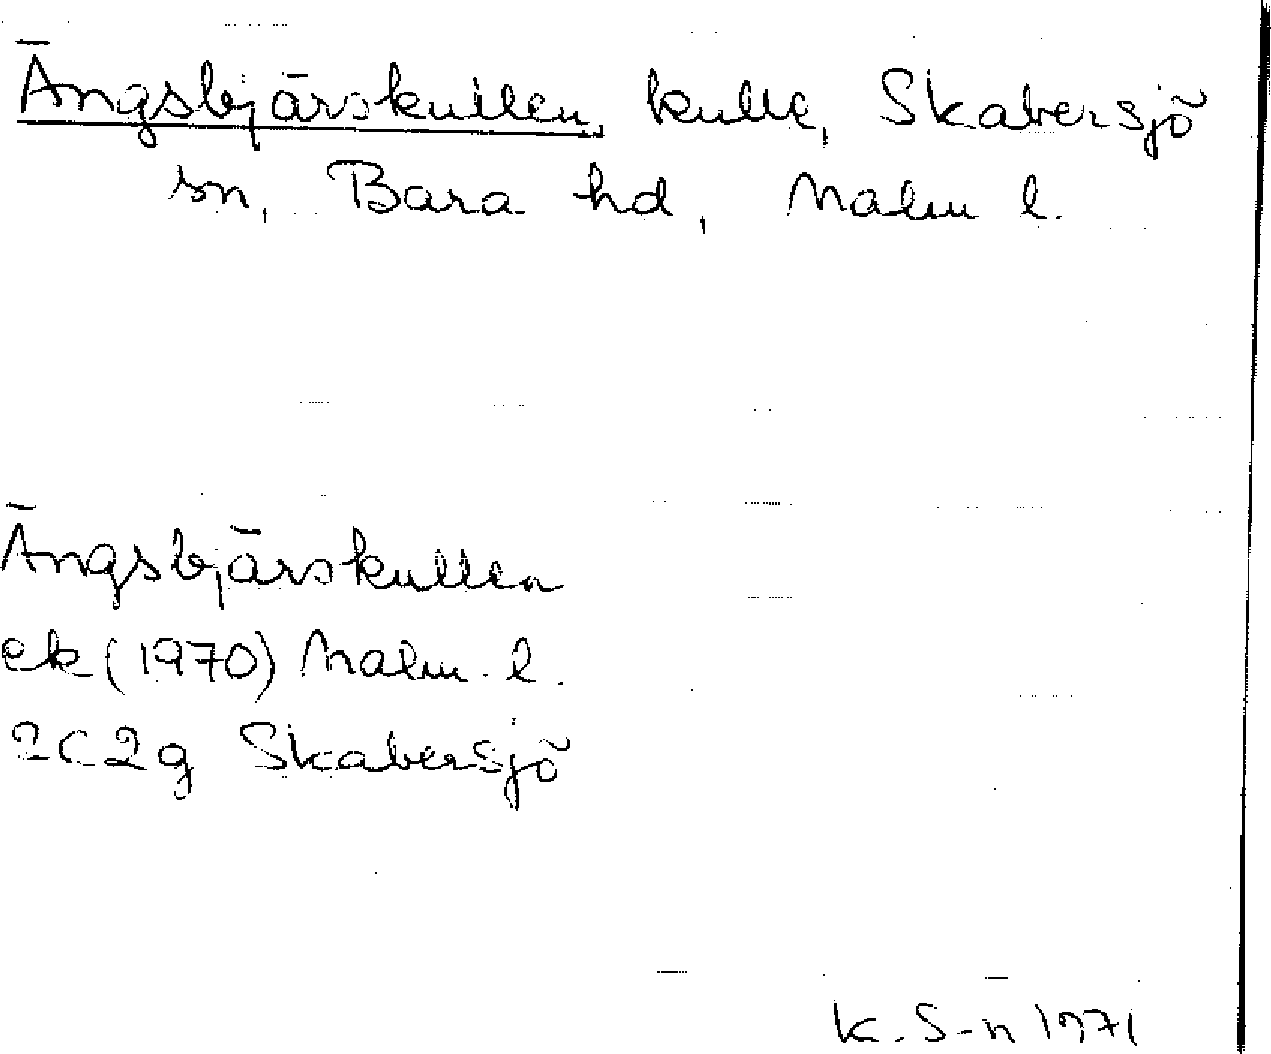 Ängsbjärskullen, kulle, Skabersjö
sn, Bara hd, Malm l.
Ängsbjärskullen
ek (1970) Malm. l.
2C2g Skabersjö
K. S-n 1971